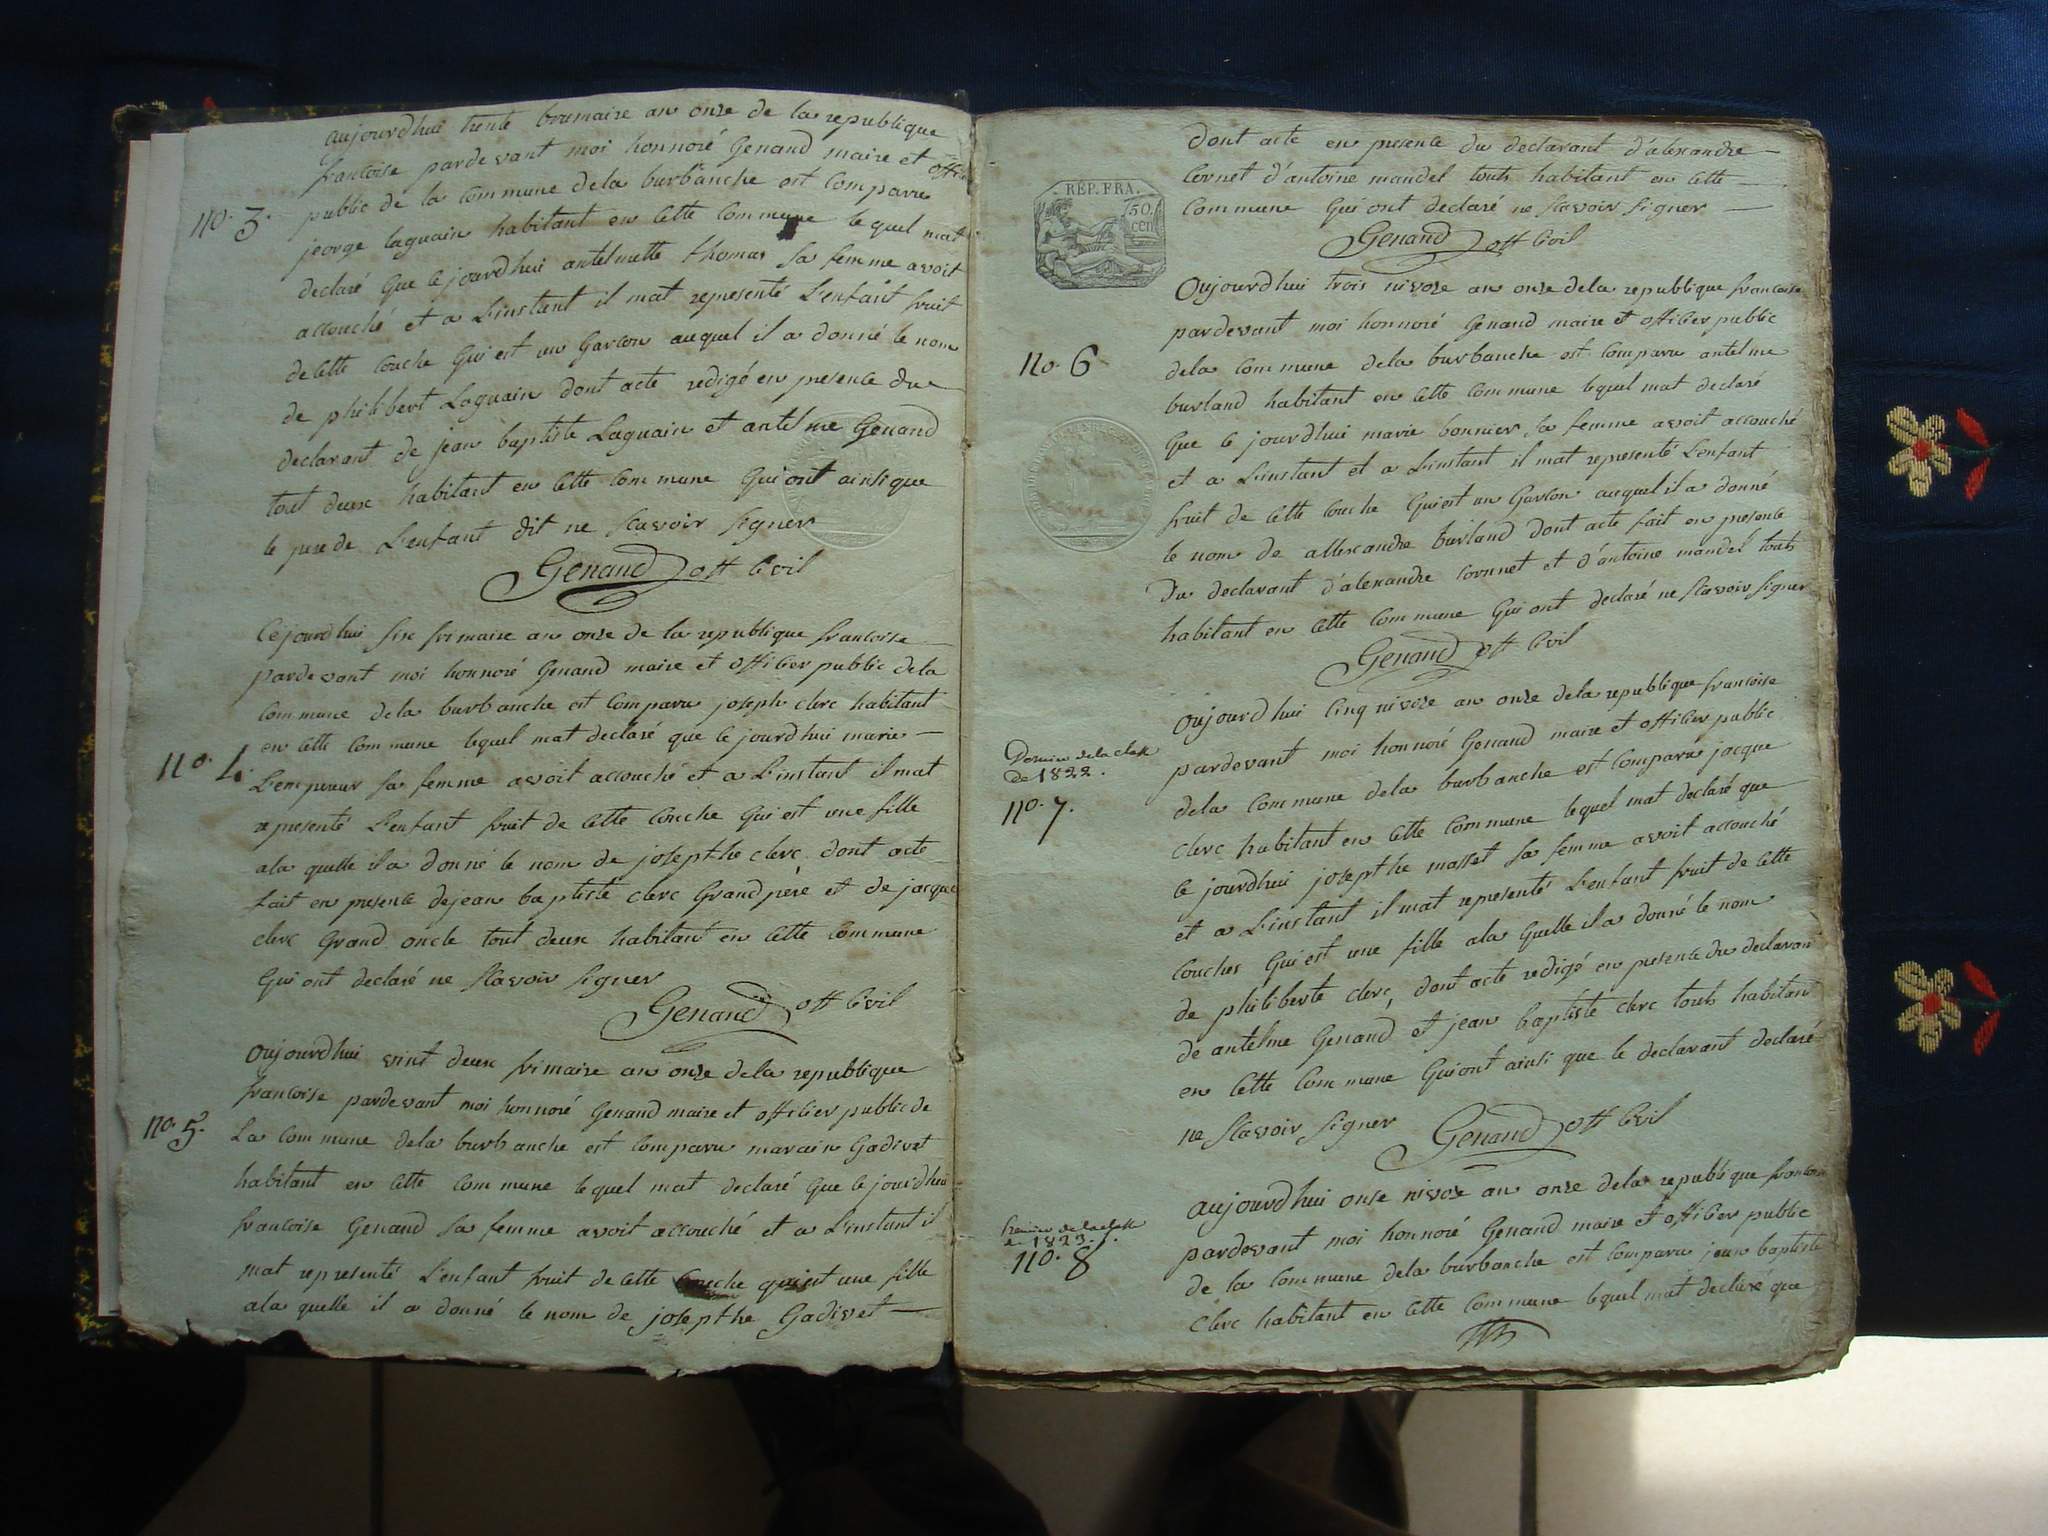 aujourdhui trente brumaire an onze de la republique
francoise pardevant moi honnoré Genand maire et offi
public de la commune dela burbanche est comparu
no. 3. jeorge laguain habitant en cette commune lequel mat
declaré que cejourdhui antelmette thomas sa femme avoit
accouché et a L'instant il mat representé L'enfant fruit
de cette couche qui est un Garcon auquel il a donné le nom
de philibert Laguain dont acte redigé en presence du
declarant de jean baptiste Laguain et antelme Genand
tout deux habitant en cette commune qui ont ainsi que
le pere de L'enfant dit ne scavoir signer
Genand off civil
cejourdhui six frimaire an onze de la republique francoise
pardevant moi honnoré Genand maire et officier public dela
commune dela burbanche est comparu joseph clerc habitant
en cette commune lequel mat declaré que cejourdhui marie
no. 4. L'empereur sa femme avoit accouché et a L'instant il mat
representé L'enfant fruit de cette couche qui est une fille
ala quelle il a donné le nom de josepthe clerc dont acte
fait en presence dejean baptiste clerc Grand père et de jacque
clerc Grand oncle tout deux habitant en cette commune
qui ont declaré ne scavoir signer
Genand off civil
aujourdhui vint deux frimaire an onze dela republique
francoise pardevant moi honnoré Genand maire et officier public de
no. 5. La commune dela burbanche est comparu marain Gadivet
habitant en cette commune lequel mat declaré que cejourdhui
francoise Genand sa femme avoit accouché et a L'instant il
mat representé L'enfant fruit de cette couche qui est une fille
ala quelle il a donné le nom de josepthe Gadivet
dont acte en presence du declarant d'alexandre
Cornet d'antoine mandel touts habitant en cette
commune qui ont declaré ne scavoir signer
Genand off civil
RÉP. FRA.
50
cen
aujourdhui trois nivose an onze dela republique francoise
pardevant moi honnoré Genand maire et officier public
no. 6 dela commune dela burbanche est comparu antelme
burland habitant en cette commune lequel mat declaré
que cejourdhui marie bonnier sa femme avoit accouché
et a L'instant et a L'instant il mat representé L'enfant
fruit de cette couche qui est un Garcon auquel il a donné
le nom de allexandre burland dont acte fait en presence
du declarant d'alexandre cornnet et d'antoine mandel touts
habitant en cette commune qui ont declaré ne scavoir signer
Genand off civil
aujourdhui cinq nivose an onze dela republique francoise
pardevant moi honnoré Genand maire et officier public
Dernier de la classe
de 1822.
no. 7. dela commune dela burbanche est comparu jacque
clerc habitant en cette commune lequel mat declaré que
cejourdhui josepthe masset sa femme avoit accouché
et a L'instant il mat representé L'enfant fruit de cette
couches qui est une fille ala quelle il a donné le nom
de philiberte clerc, dont acte redigé en presence du declarant
de antelme Genand et jean baptiste clerc touts habitant
en cette commune qui ont ainsi que le declarant declaré
ne scavoir signer Genand off civil
aujourdhui onse nivose an onze dela republique francoise
premier de la classe
de 1823.
no. 8. pardevant moi honnoré Genand maire et officier public
de la commune dela burbanche est comparu jean baptiste
clerc habitant en cette commune lequel mat declaré que